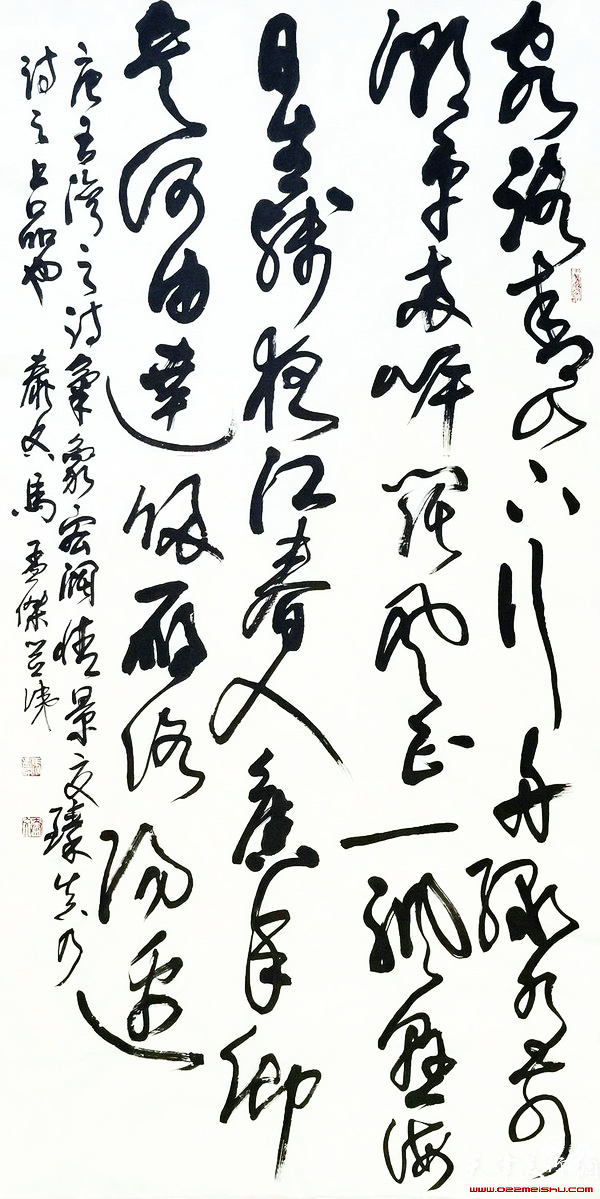 客路青山下行舟綠水前
潮平兩岸闊風正一帆懸海
日生殘夜江春入舊年鄉
書何由達歸雁洛陽邊
唐王灣之詩氣象宏闊情景交臻真乃
詩之上品也 馬孟傑並識
www.022meishu.com